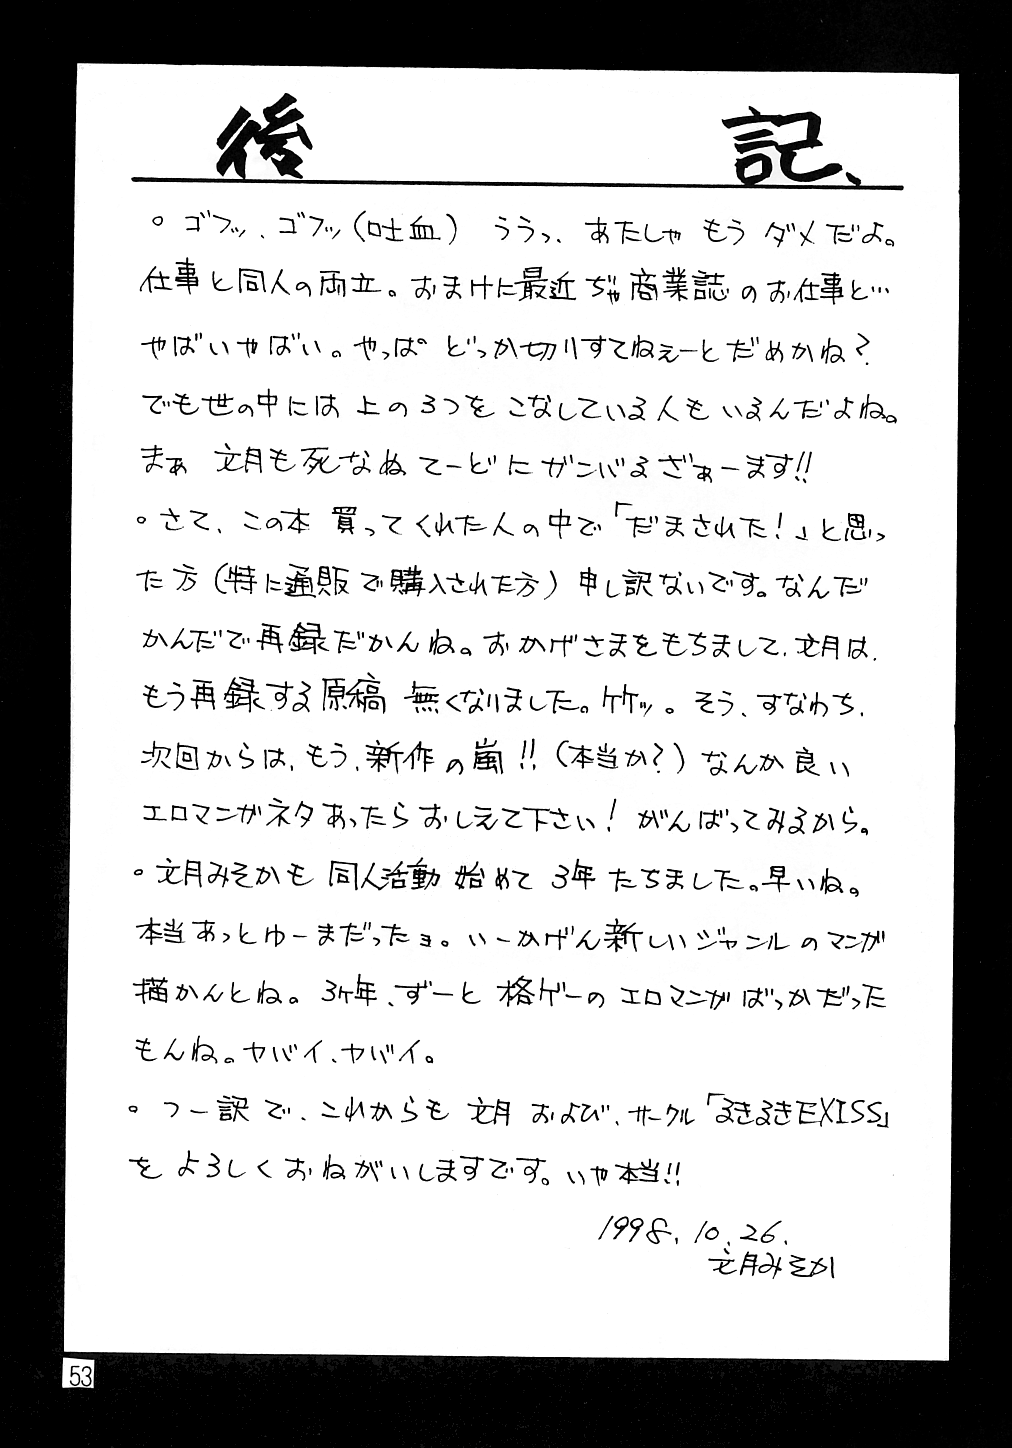 後記、
○ゴフッ、ゴフッ(吐血) ううっ、あたしゃもうダメだよ。
仕事と同人の両立。おまけに最近ぢゃ商業誌のお仕事と…
やばいやばい。やっぱ どっか切りすてねぇーとだめかね?
でも世の中には上の3つをこなしている人もいるんだよね。
まぁ 文月も死なぬてーどにガンバるざぁーます!!
○さて、この本 買ってくれた人の中で「だまされた!」と思っ
た方(特に通販で購入された方)申し訳ないです。なんだ
かんだで再録だかんね。おかげさまをもちまして、文月は、
もう再録する原稿 無くなりました。ケケッ。そう、すなわち、
次回からは、もう、新作の嵐!!(本当か?)なんか良い
エロマンガネタあったらおしえて下さい!がんばってみるから。
○文月みそかも 同人活動 始めて 3年たちました。早いね。
本当あっとゆーまだったョ。いーかげん新しいジャンルのマンガ
描かんとね。3ヶ年、ずーと 格ゲーのエロマンガばっかだった
もんね。ヤバイ、ヤバイ。
○つー訳で、これからも 文月 および、サークル「るきるきEXISS」
を よろしくおねがいしますです。いや本当!!
1998.10.26.
文月みそか
53